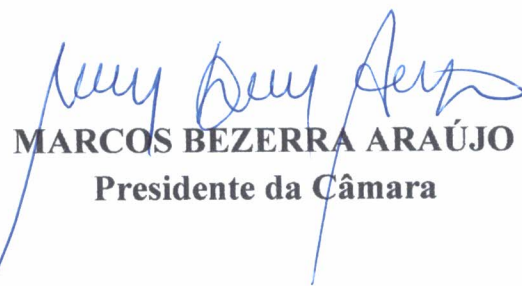 MARCOS BEZERRA ARAÚJO
Presidente da Câmara